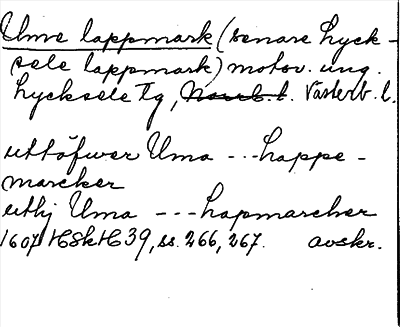 Ume lappmark (senare Lyck-
sele lappmark) motsv. ung.
Lycksele Tg, Norrb. l. Västerb. l.
uttöfwer Uma --- Lappe-
marcker
uthj Uma --- Lapmarcher
1607 HSkH 39, ss. 266, 267. avskr.